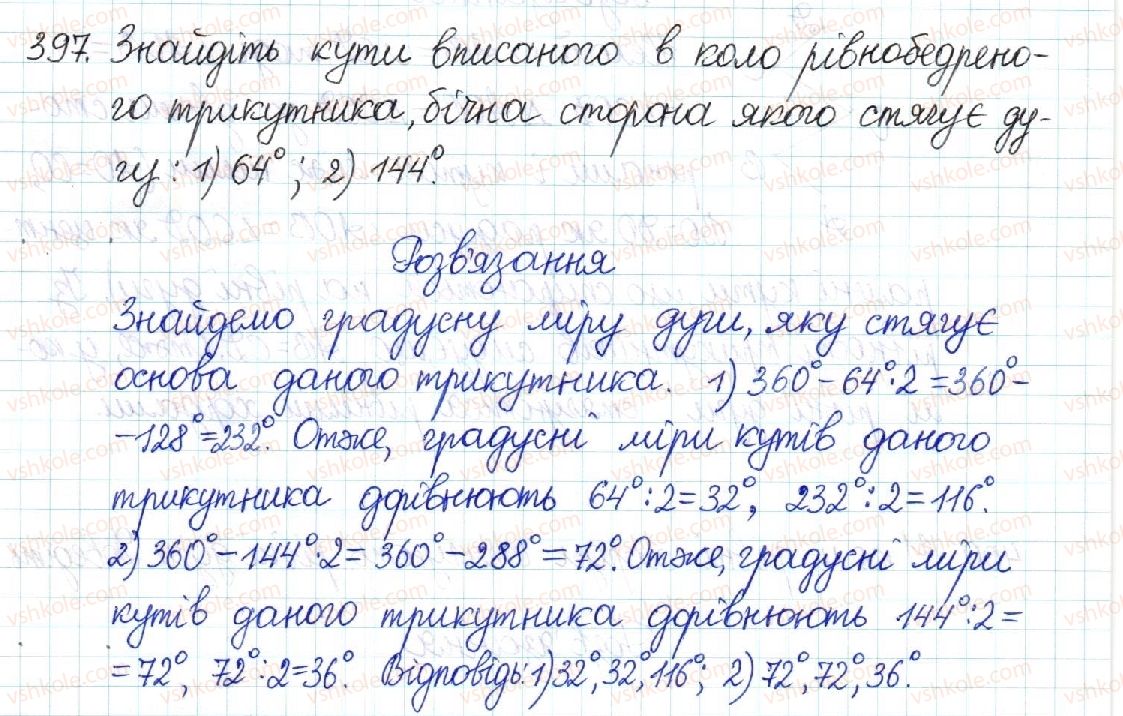 397. Знайдіть кути вписаного в коло рівнобедрено-
го трикутника, бічна сторона якого стягує ду-
гу: 1) 64°; 2) 144°.
Розв'язання
Знайдемо градусну міру дуги, яку стягує
основа даного трикутника. 1) 360°-64°·2=360°-
-128°=232°. Отже, градусні міри кутів даного
трикутника дорівнюють 64°:2=32°, 232°:2=116°.
2) 360°-144°·2=360°-288°=72°. Отже, градусні міри
кутів даного трикутника дорівнюють 144°:2=
=72°, 72°:2=36°. Відповідь: 1) 32°, 32°, 116°; 2) 72°, 72°, 36°.